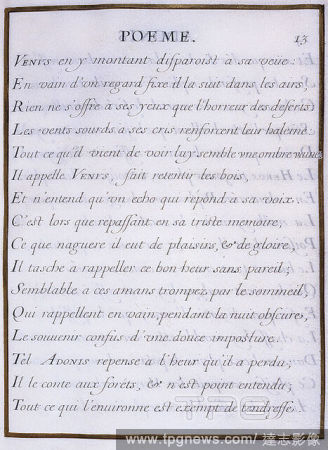 POEME.
13
VENVS en y montant disparoist a sa veüe:
En vain d'vn regard fixe il la suit dans les airs,
Rien ne s'offre a ses yeux que l'horreur des deserts;
Les vents sourds a ses cris renforcent leur haleine
Tout ce qu'il vient de voir luy semble vne ombre vaine;
Il appelle VENVS, fait retentir les bois,
Et n'entend qu'vn echo qui répond a sa voix.
C'est lors que repassant en sa triste memoire,
Ce que naguere il eut de plaisirs, & de gloire,
Il tasche à rappeller ce bon heur sans pareil;
Semblable a ces amans trompez par le sommeil,
Qui rappellent en vain, pendant la nuit obscure,
Le souuenir confus d'vne douce imposture.
Tel ADONIS repense a l'heur qu'il a perdu;
Il le conte aux forets, & n'est point entendu;
Tout ce qui l'enuironne est exempt de tendresse
TPG
www.tpgnews.com/ 達志影像